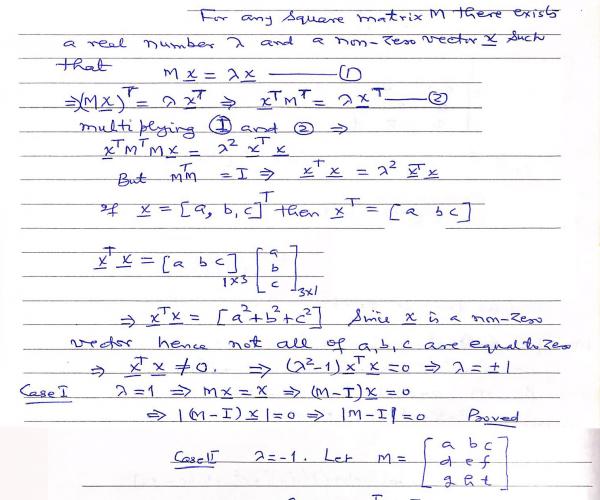 For any square matrix M there exists
a real number λ and a non-zero vector x such
that Mx = λx ——— ①
⇒(Mx)ᵀ = λxᵀ ⇒ xᵀMᵀ = λxᵀ —— ②
multiplying ① and ② ⇒
xᵀMᵀMx = λ² xᵀx
But MᵀM = I ⇒ xᵀx = λ² xᵀx
If x = [a, b, c]ᵀ then xᵀ = [a b c]
xᵀx = [a b c]₁ₓ₃ [a b c]₃ₓ₁
⇒ xᵀx = [a²+b²+c²] Since x is a non-zero
vector hence not all of a, b, c are equal to zero
⇒ xᵀx ≠ 0. ⇒ (λ²-1)xᵀx = 0 ⇒ λ = ±1
Case I λ=1 ⇒ Mx = x ⇒ (M-I)x = 0
⇒ |(M-I)x| = 0 ⇒ |M-I| = 0 Proved
Case II λ=-1. Let M = [a b c
d e f
g h t]